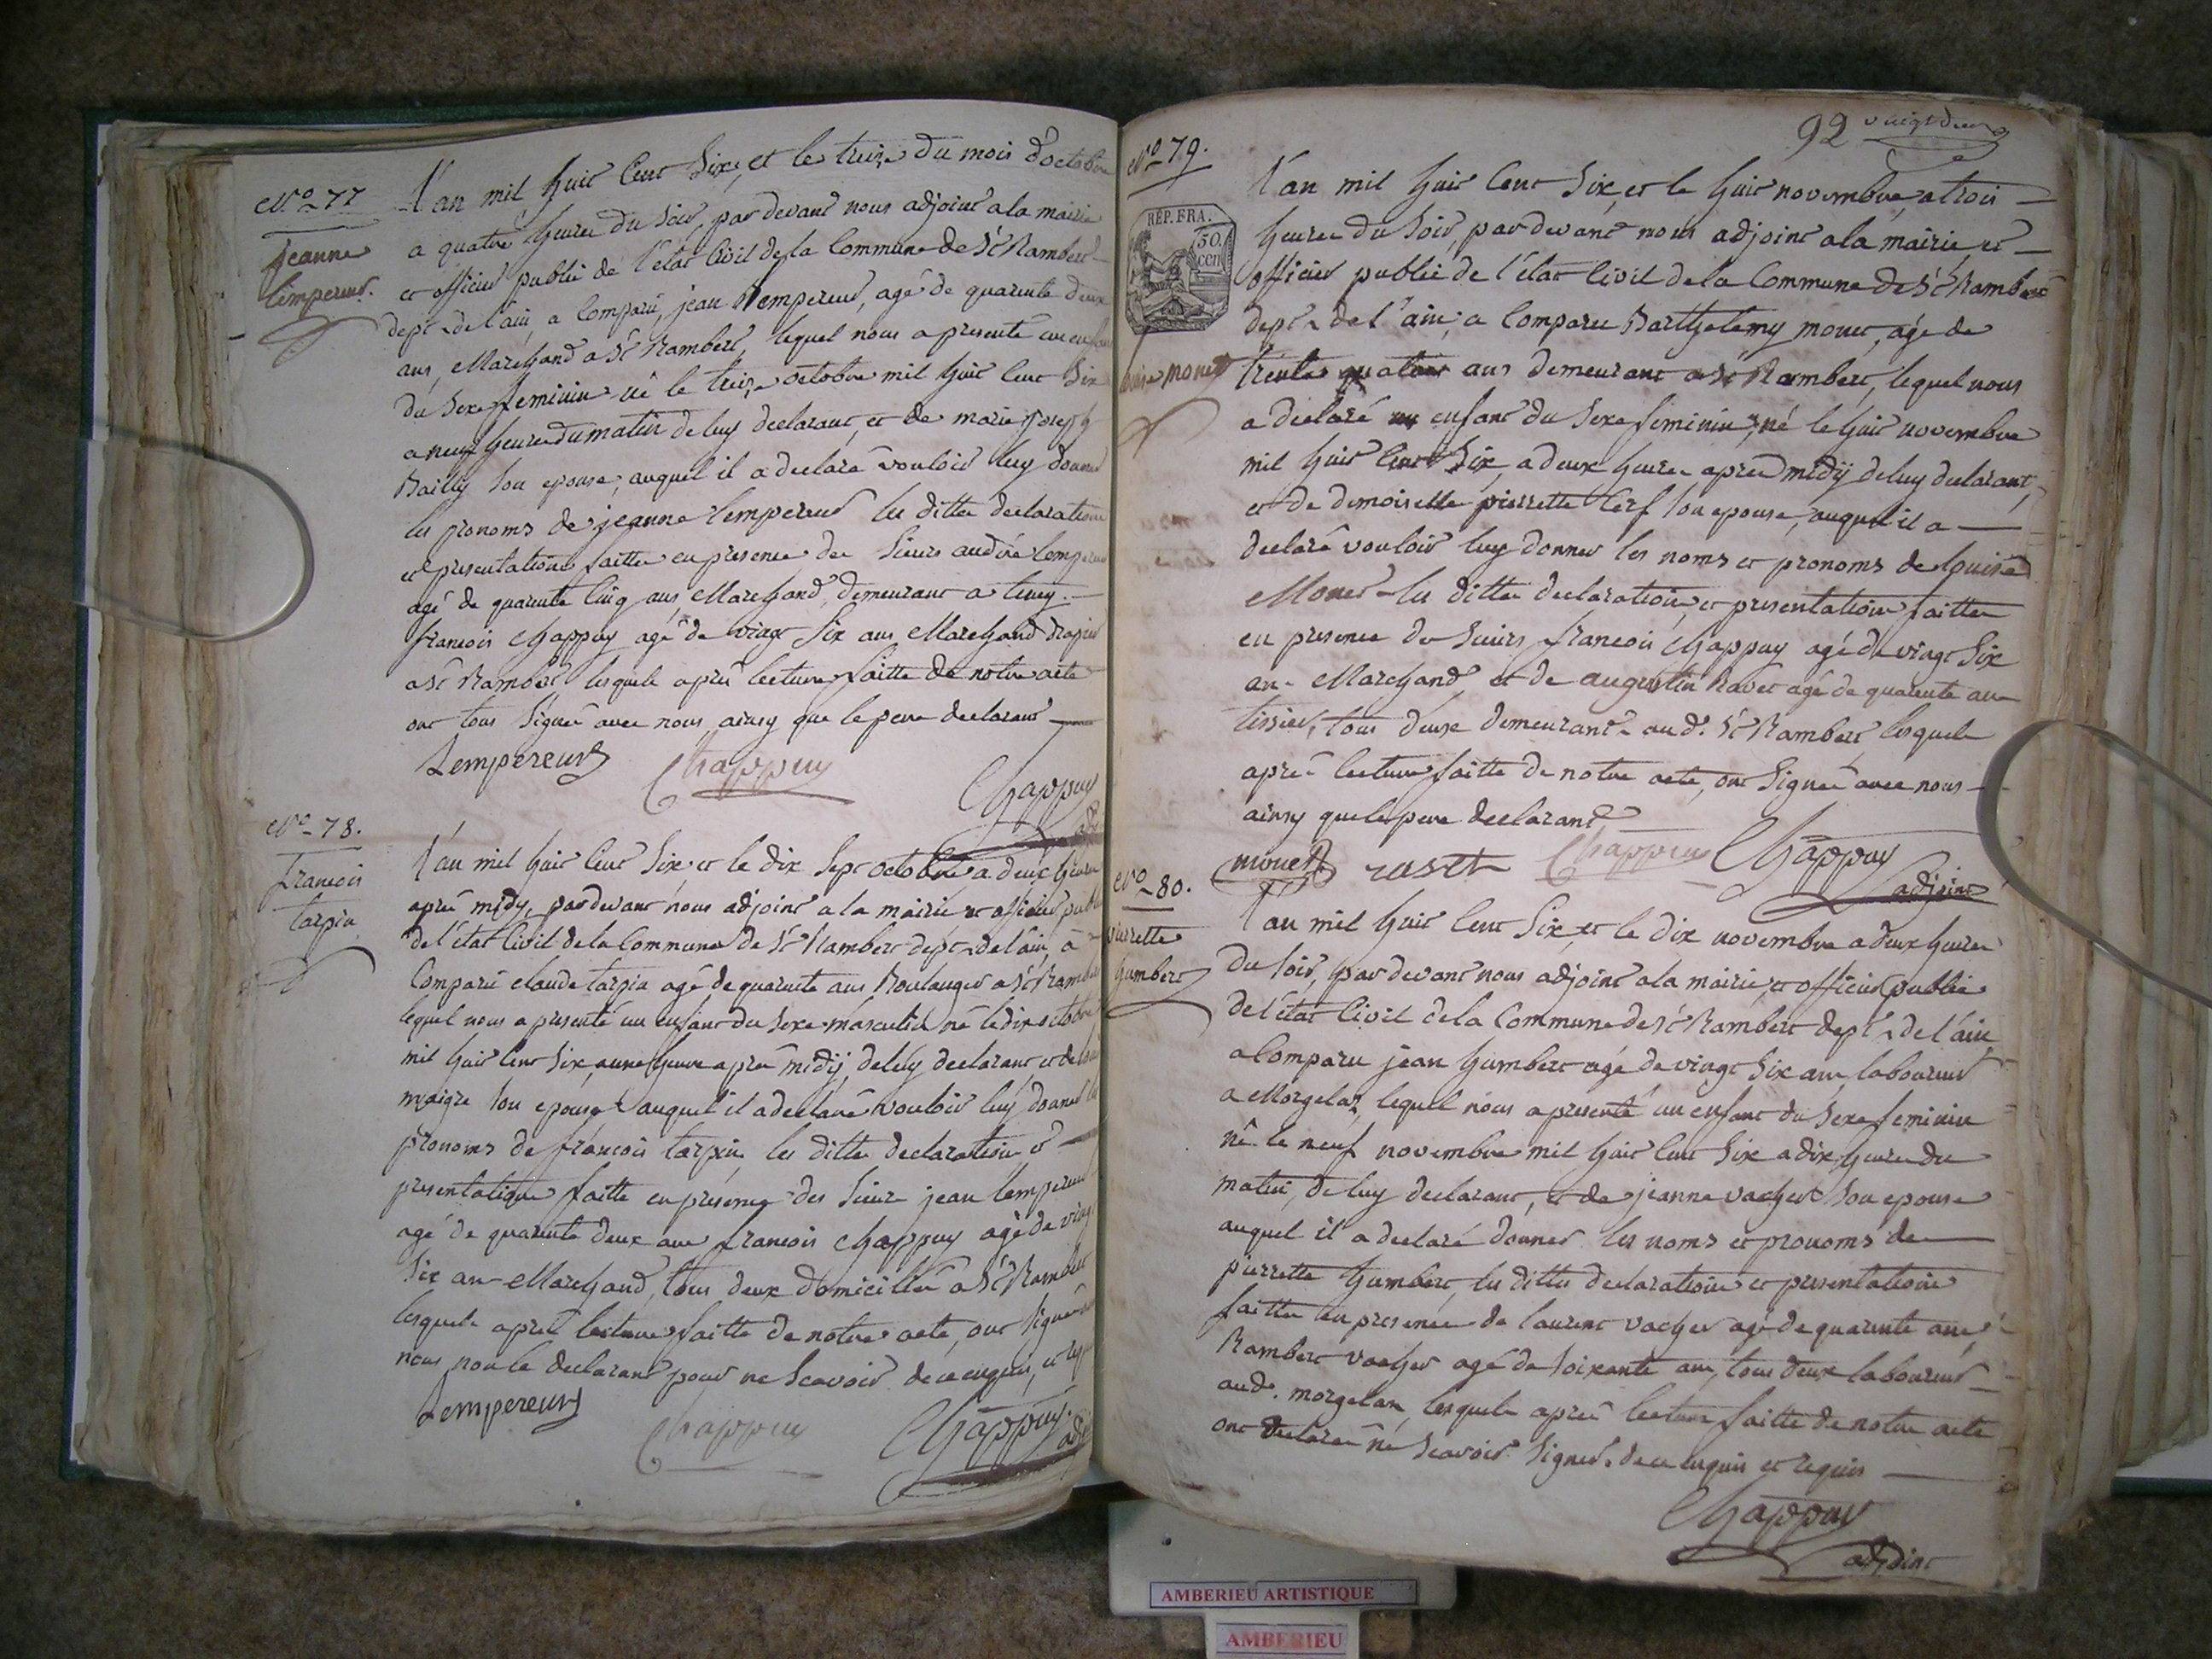 N.o 77
jeanne
lempereur.
L'an mil huit cent six, et le treize du mois d'octobre
a quatre heures du soir, par devant nous adjoint a la mairie
et officier public de l'état civil de la commune de St Rambert
dept de l'ain, a comparu, jean lempereur, agé de quarante deux
ans, marchand a St Rambert, lequel nous a presenté un enfant
du sexe feminin né le treize octobre mil huit cent six
a neuf heures du matin de luy declarant, et de marie joseph
Bailly son epouse, auquel il a declaré vouloir luy donner
les pronoms de jeanne lempereur les dittes declaration
et presentation faitte en presence des sieurs andré lempereur
agé de quarante cinq ans marchand, demeurant a tenay
francois chappuy agé de vingt six ans marchand drapier
a St Rambert lesquels après lecture faitte de notre acte
ont tous signé avec nous ainsy que le pere declarant
Lempereur Chappuy
Chappuy
N.o 78.
francois
tarpin
L'an mil huit cent six et le dix sept octobre a deux heures
après midy, par devant nous adjoint a la mairie et officier public
de l'état civil de la commune de St Rambert dept de l'ain, a
comparu claude tarpin agé de quarante ans Boulanger a St Rambert
lequel nous a presenté un enfant du sexe masculin né le dix octobre
mil huit cent six, a une heure après midij, de luy declarant et de
maigre son epouse auquel il a declaré vouloir luy donner les
pronoms de francois tarpin les dittes declaration et
presentation faitte en presence des sieurs jean lempereur
agé de quarante deux ans francois chappuy agé de vingt
six ans marchand, tous deux domiciliés a St Rambert
lesquels après lecture faitte de notre acte, ont signé
nous, non le declarant pour ne scavoir de ce enquis, et
Lempereur Chappuy Chappuy adj
92 vingt deux
N.o 79.
REP. FRA.
50.
CEN
louise monet
L'an mil huit cent six, et le huit novembre, a trois
heures du soir, par devant nous adjoint a la mairie, et
officier public de l'état civil de la commune de St Rambert
dept de l'ain, a comparu Barthelemy monet, agé de
trente quatre ans demeurant a St Rambert, lequel nous
a declaré un enfant du sexe feminin, né le huit novembre
mil huit cent six, a deux heures après midij de luy declarant,
et de demoiselle pierrette Cerf son epouse, auquel il a
declaré vouloir luy donner les noms et pronoms de louise
Monet les dittes declaration, et presentation faittes
en presence de sieurs francois chappuy agé de vingt six
ans marchand et de augustin Ravet agé de quarante ans
tissier, tous deux demeurants aud. St Rambert lesquels
après lecture faitte de notre acte, ont signés avec nous
ainsy que le pere declarant
monet ravet Chappuy Chappuy
adjoint
N.o 80.
pierrette
humbert
L'an mil huit cent six, et le dix novembre a deux heures
du soir, par devant nous adjoint a la mairie, et officier public
de l'état civil de la commune de St Rambert dept de l'ain
a comparu jean humbert agé de vingt six ans laboureur
a Morgelaz, lequel nous a presenté un enfant du sexe feminin
né le neuf novembre mil huit cent six a dix heures du
matin, de luy declarant, et de jeanne vacher son epouse
auquel il a declaré donner les noms et pronoms de
pierrette humbert, les dittes declaration et presentation
faittes en presence de laurent vacher agé de quarante ans,
Rambert vacher agé de soixante ans, tous deux laboureurs
aud. morgelaz, lesquels après lecture faitte de notre acte
ont declaré ne scavoir signer de ce enquis et requis
Chappuy
adjoint
AMBERIEU ARTISTIQUE
AMBERIEU